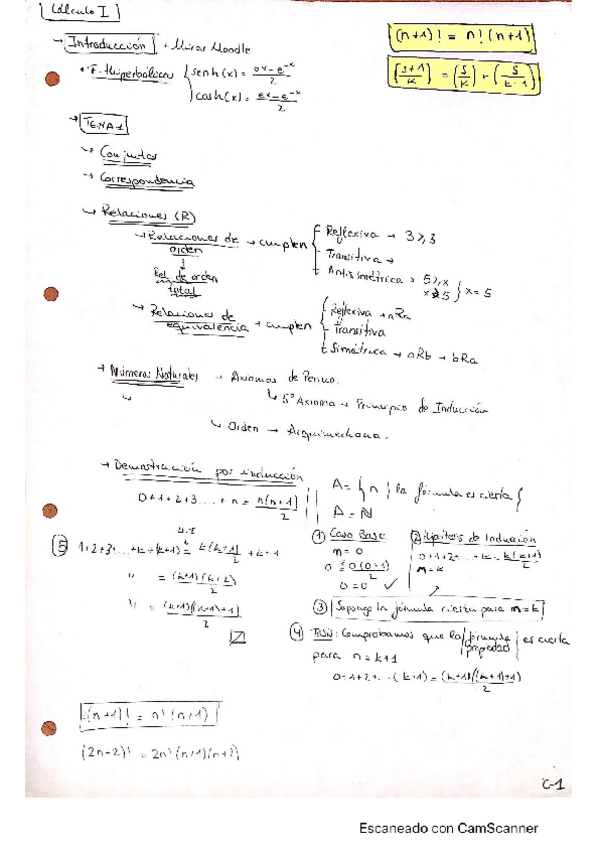 Cálculo I
(n+1)! = n!(n+1)
→ Introducción + Mirar Moodle
(s+1 / k) = (s / k) + (s / k-1)
• F. Hiperbólicas { senh(x) = (e^x - e^-x)/2
cosh(x) = (e^x - e^-x)/2
→ TEMA 1
↳ Conjuntos
→ Correspondencia
↳ Relaciones (R)
→ Relaciones de orden → cumplen { Reflexiva → 3 ≥ 3
Transitiva →
Antisimétrica → 5 ≥ x, x ≥ 5 } x = 5
↓
Rel. de orden total
→ Relaciones de equivalencia → cumplen { Reflexiva → aRa
Transitiva
Simétrica → aRb → bRa
→ Números Naturales → Axiomas de Peano.
↳ 5º Axioma → Principio de Inducción
↳ Orden → Arquimediana.
→ Demostración por inducción
0+1+2+3....+n = n(n+1)/2
A = { n | la fórmula es cierta }
A = ℕ
⑤ 1+2+3+...+k+(k+1) = k(k+1)/2 + k+1
" = (k+1)(k+2)/2
" = (k+1)((k+1)+1)/2
① Caso Base
n = 0
0 = 0(0+1)/2
0 = 0 ✓
② Hipótesis de Inducción
0+1+2+...+k = k(k+1)/2
n = k
③ Supongo la fórmula cierta para n = k
④ Tesis: Comprobamos que la fórmula propiedad es cierta
para n = k+1
0+1+2+...(k+1) = (k+1)((k+1)+1)/2
(n+1)! = n!(n+1)
(2n+2)! = 2n!(n+1)(n+2)
C-1
Escaneado con CamScanner